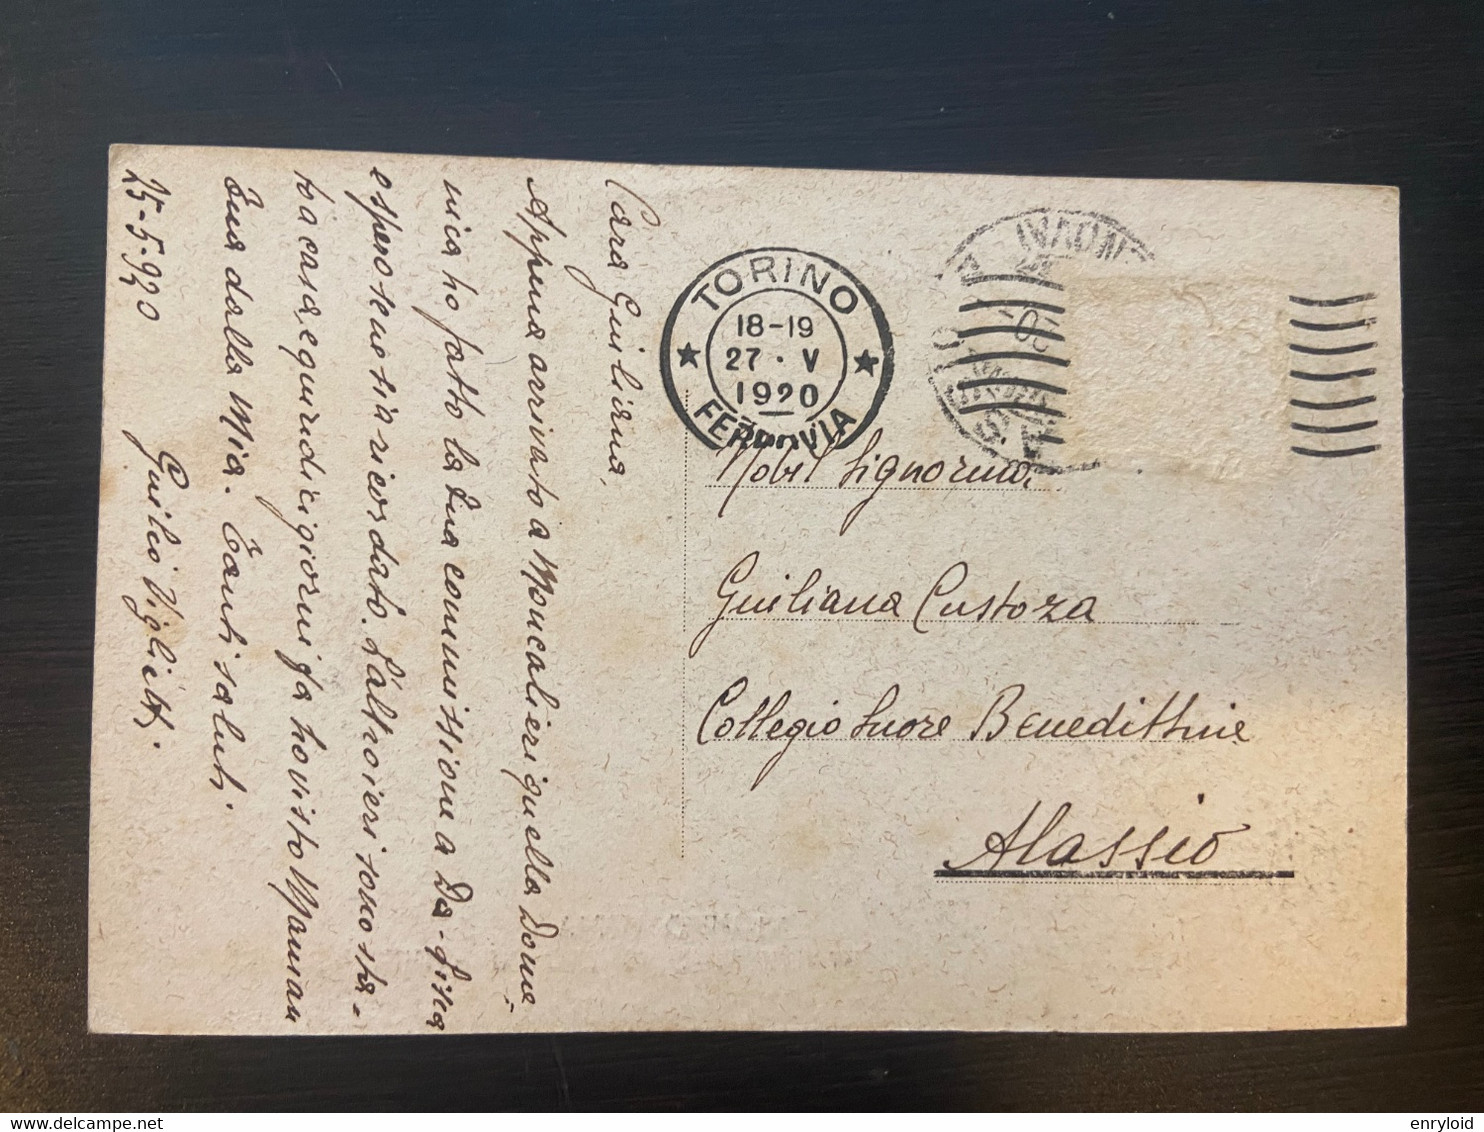 Cara Giuliana,
Appena arrivato a Moncalieri quella Dome-
nica ho fatto la Sua commissione a Da-Pisa
e spero se ne sia ricordato. L'altro ieri sono sta-
to a casa, e quindici giorni fa ho visto Maman
Sua dalla Mia. Tanti saluti.
Giulio Viglietti.
25-5-920
TORINO
18-19
27 · V
1920
FERROVIA
Nobil Signorina
Giuliana Custoza
Collegio Suore Benedittine
Alassio
enryloid